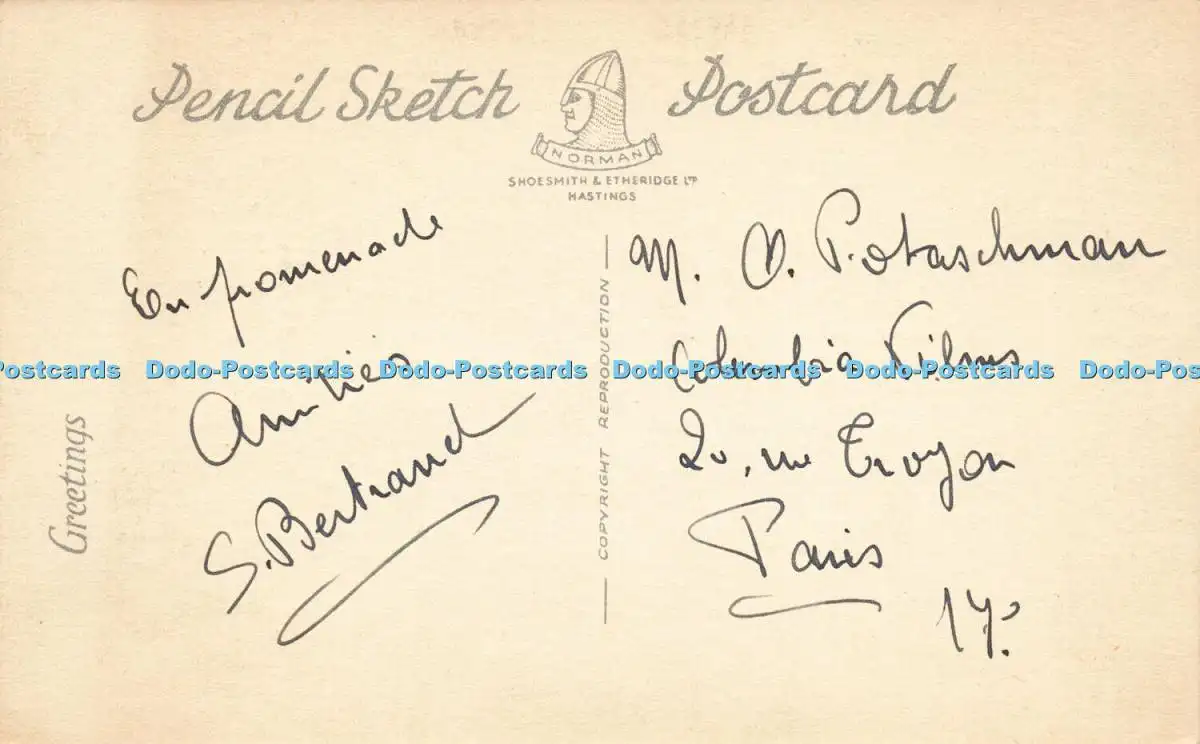 Pencil Sketch Postcard
NORMAN
SHOESMITH & ETHERIDGE LTD
HASTINGS
En promenade
Amitiés
S. Bertrand
Greetings
COPYRIGHT REPRODUCTION
M. O. Potaschman
Columbia Films
20, rue Troyon
Paris
17e
Dodo-Postcards Dodo-Postcards Dodo-Postcards Dodo-Postcards Dodo-Postcards